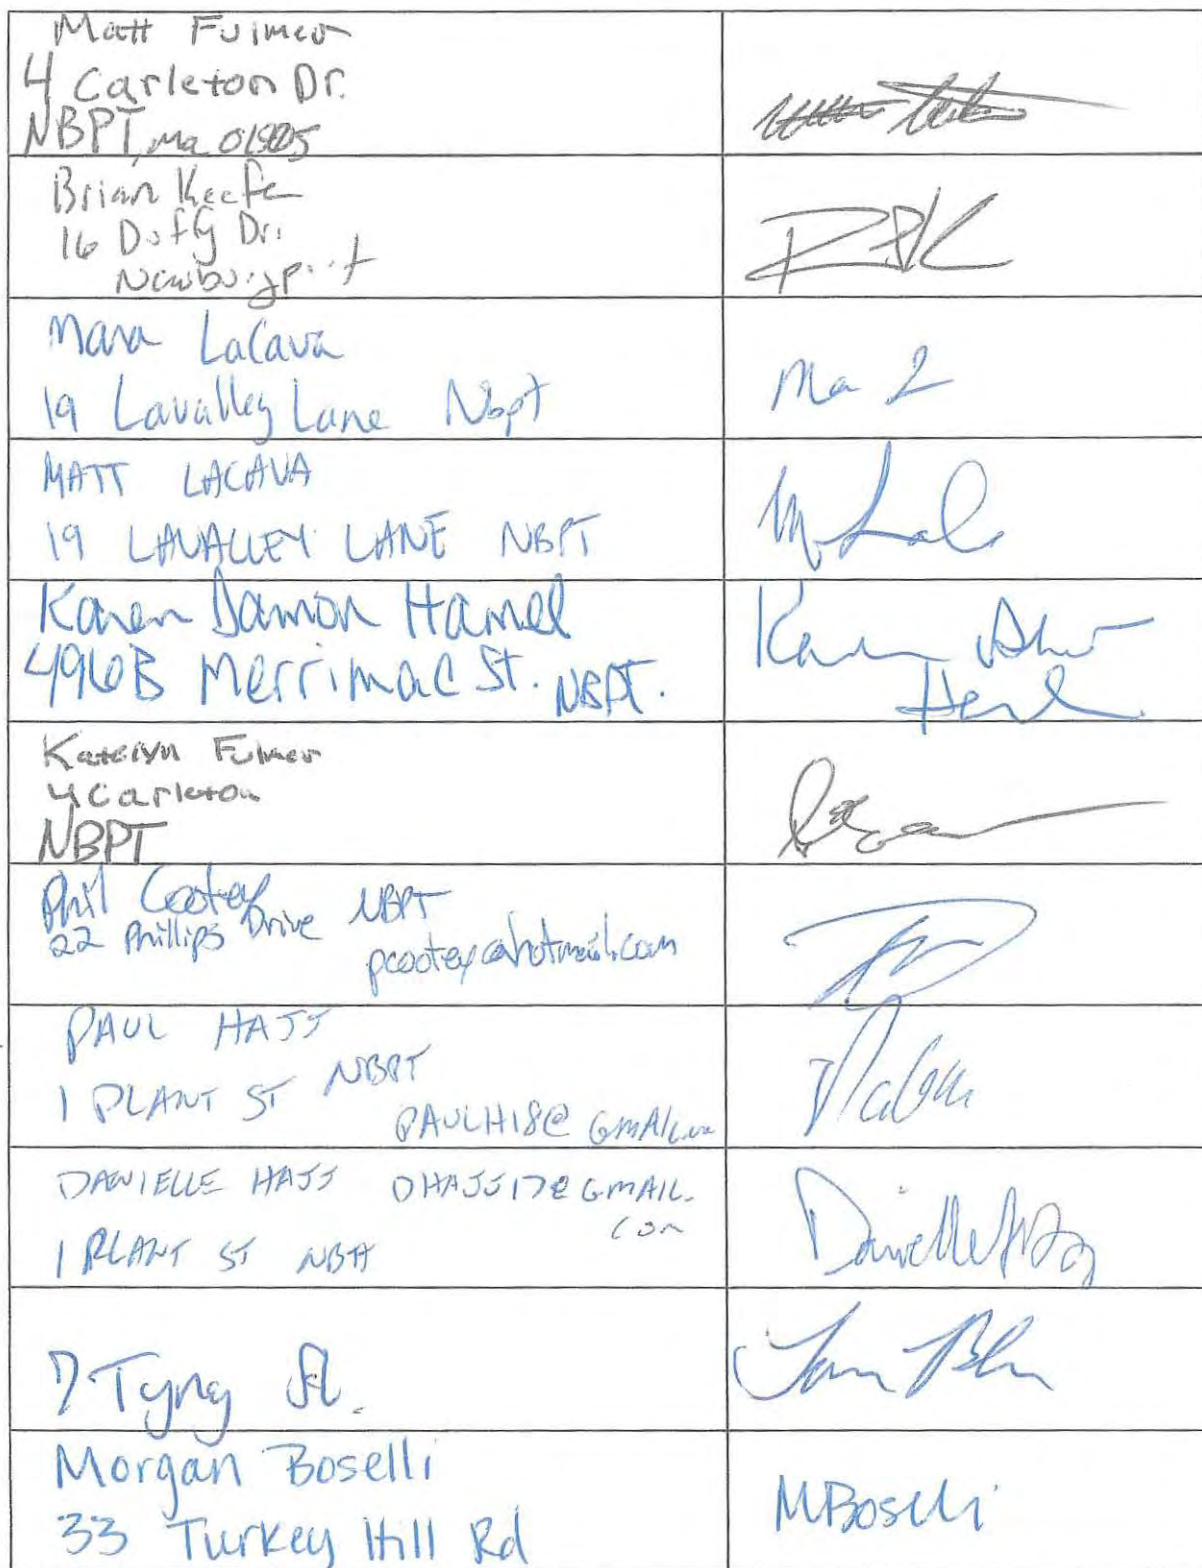 Matt Fulmer
4 Carleton Dr.
NBPT, Ma 01950
Brian Keefe
16 Duffy Dr.
Newburyport
RPK
Mara LaCava
19 Lavalley Lane Nbpt
Ma L
MATT LACAVA
19 LAVALLEY LANE NBPT
Karen Damon Hamel
496B Merrimac St. NBPT.
Katelyn Fulmer
4 Carleton
NBPT
Phil Cootey NBPT
22 Phillips Drive
pcootey@hotmail.com
PAUL HAJJ
1 PLANT ST NBPT
PAULH18@GMAIL.com
DANIELLE HAJJ DHAJJ17@GMAIL.
com
1 PLANT ST NBPT
Danielle Hajj
7 Tyng St.
Morgan Boselli
33 Turkey Hill Rd
MBoselli